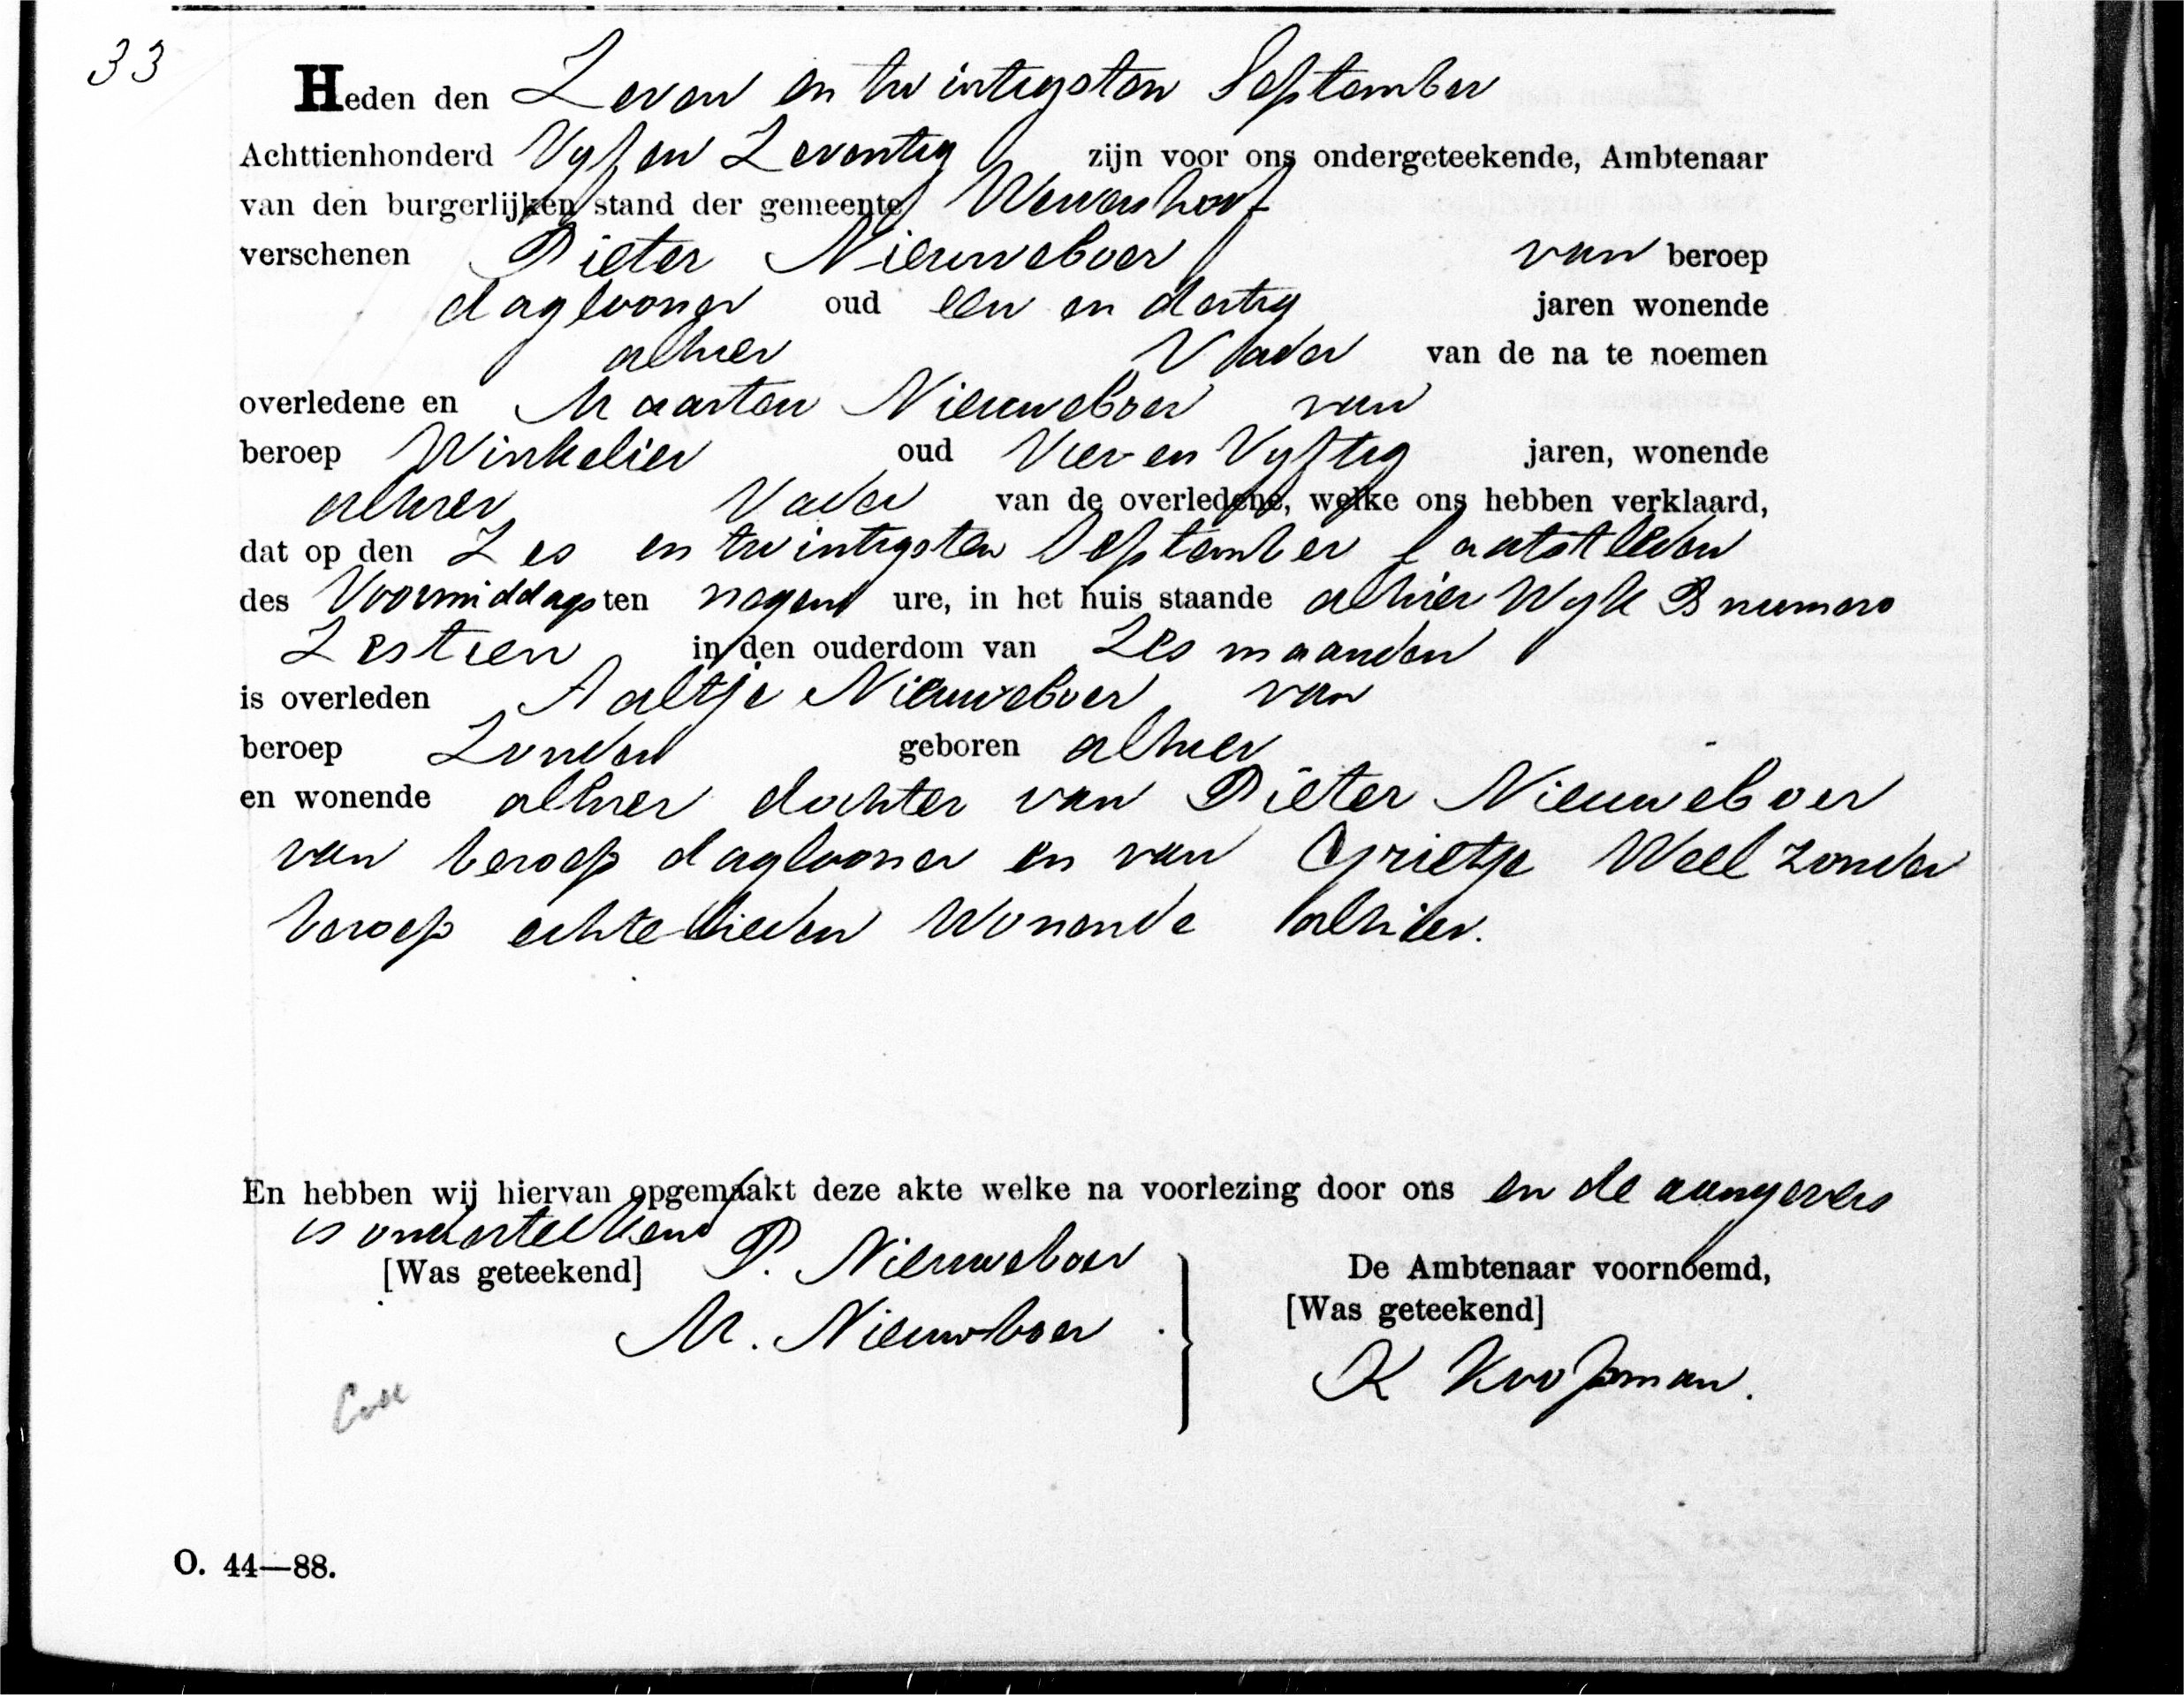 33
Heden den Zeven en twintigsten September
Achttienhonderd Vyf en Zeventig zijn voor ons ondergeteekende, Ambtenaar
van den burgerlijken stand der gemeente Wervershoof
verschenen Pieter Nieuweboer van beroep
daglooner oud een en dertig jaren wonende
alhier Vader van de na te noemen
overledene en Maarten Nieuweboer van
beroep Winkelier oud Vier en Vyftig jaren, wonende
alhier Vader van de overledene, welke ons hebben verklaard,
dat op den Zes en twintigsten September laatstleden
des Voormiddags ten negen ure, in het huis staande alhier Wyk B numero
Zestien in den ouderdom van Zes maanden
is overleden Aaltje Nieuweboer van
beroep Zonder geboren alhier
en wonende alhier dochter van Pieter Nieuweboer
van beroep daglooner en van Grietje Weel zonder
beroep echtelieden Wonende alhier.
En hebben wij hiervan opgemaakt deze akte welke na voorlezing door ons en de aangevers
is onderteekend
[Was geteekend] P. Nieuweboer
M. Nieuwboer
De Ambtenaar voornoemd,
[Was geteekend]
K Koopman.
O. 44—88.